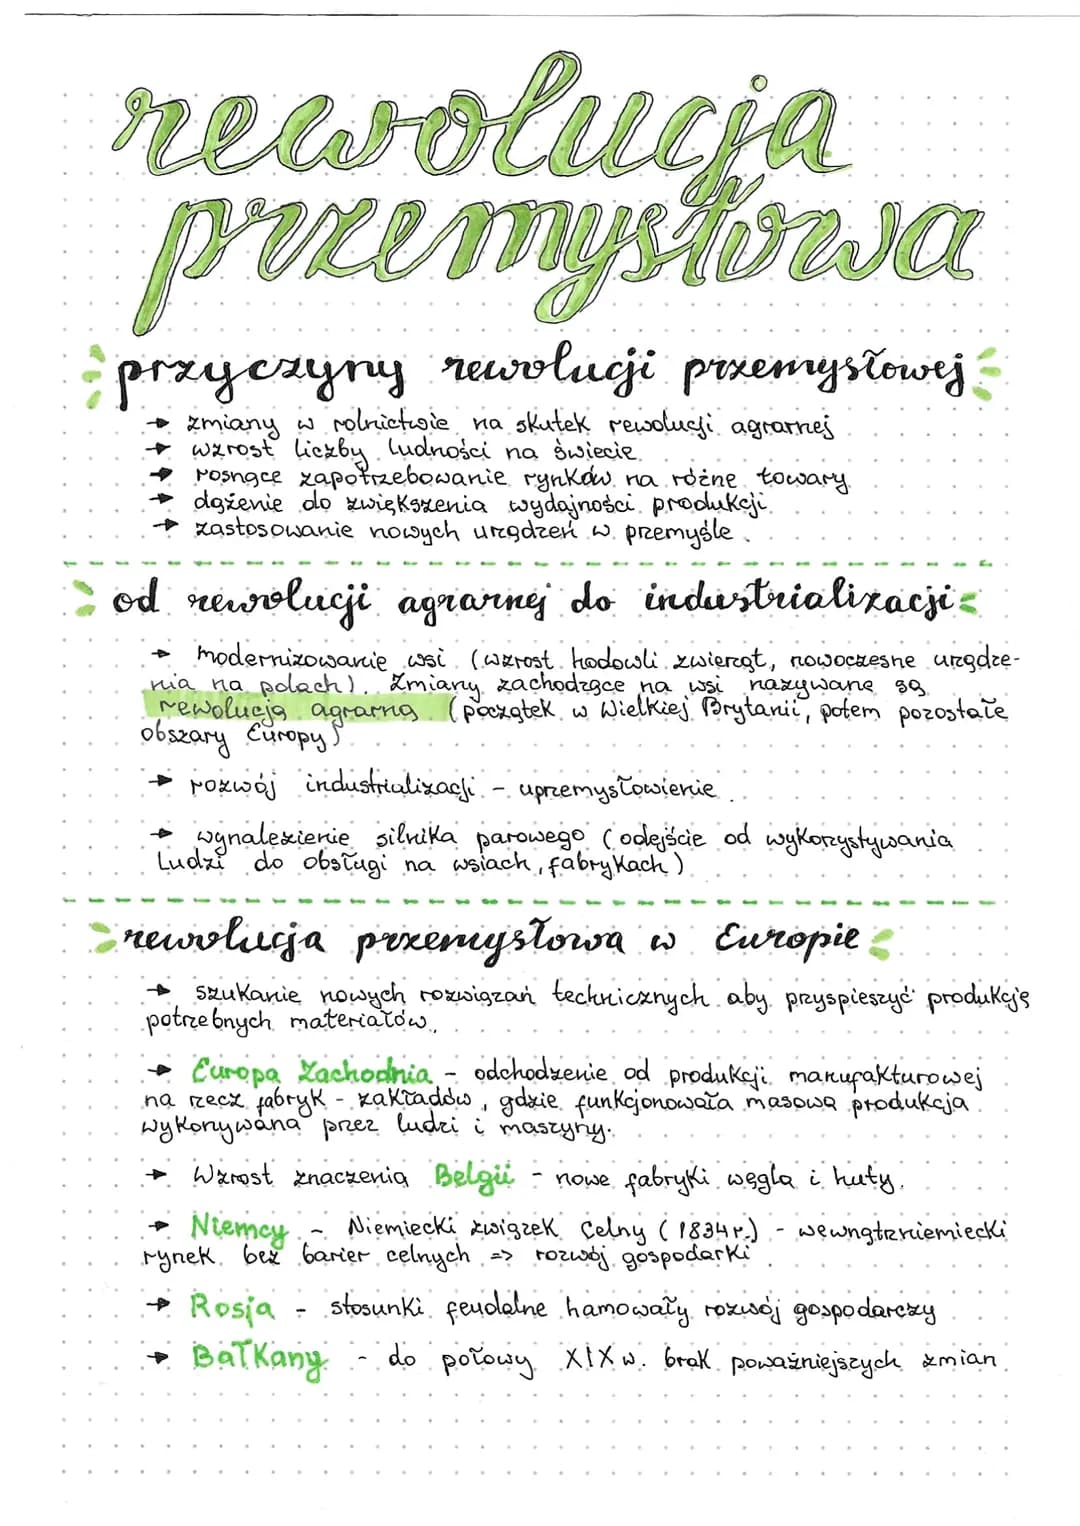 rewolucja
przemysłowa
przyczyny rewolucji przemysłowej
→ zmiany w rolnictwie na skutek rewolucji agrarnej
→ wzrost liczby ludności na świecie
→ rosnące zapotrzebowanie rynków na różne towary
→ dążenie do zwiększenia wydajności produkcji
→ zastosowanie nowych urządzeń w przemyśle.
od rewolucji agrarnej do industrializacji
→ modernizowanie wsi (wzrost hodowli zwierząt, nowoczesne urządze-
nia na polach). Zmiany zachodzące na wsi nazywane są
rewolucją agrarną (początek w Wielkiej Brytanii, potem pozostałe
obszary Europy)
→ rozwój industrializacji - uprzemysłowienie
→ wynalezienie silnika parowego (odejście od wykorzystywania
ludzi do obsługi na wsiach, fabrykach)
rewolucja przemysłowa w Europie
→ szukanie nowych rozwiązań technicznych aby przyspieszyć produkcję
potrzebnych materiałów.
→ Europa Zachodnia - odchodzenie od produkcji manufakturowej
na rzecz fabryk - zakładów, gdzie funkcjonowała masowa produkcja
wykonywana przez ludzi i maszyny.
→ Wzrost znaczenia Belgii - nowe fabryki węgla i huty.
→ Niemcy - Niemiecki związek Celny (1834r.) - wewnątrzniemiecki
rynek bez barier celnych => rozwój gospodarki
→ Rosja - stosunki feudalne hamowały rozwój gospodarczy
→ Bałkany - do połowy XIX w. brak poważniejszych zmian